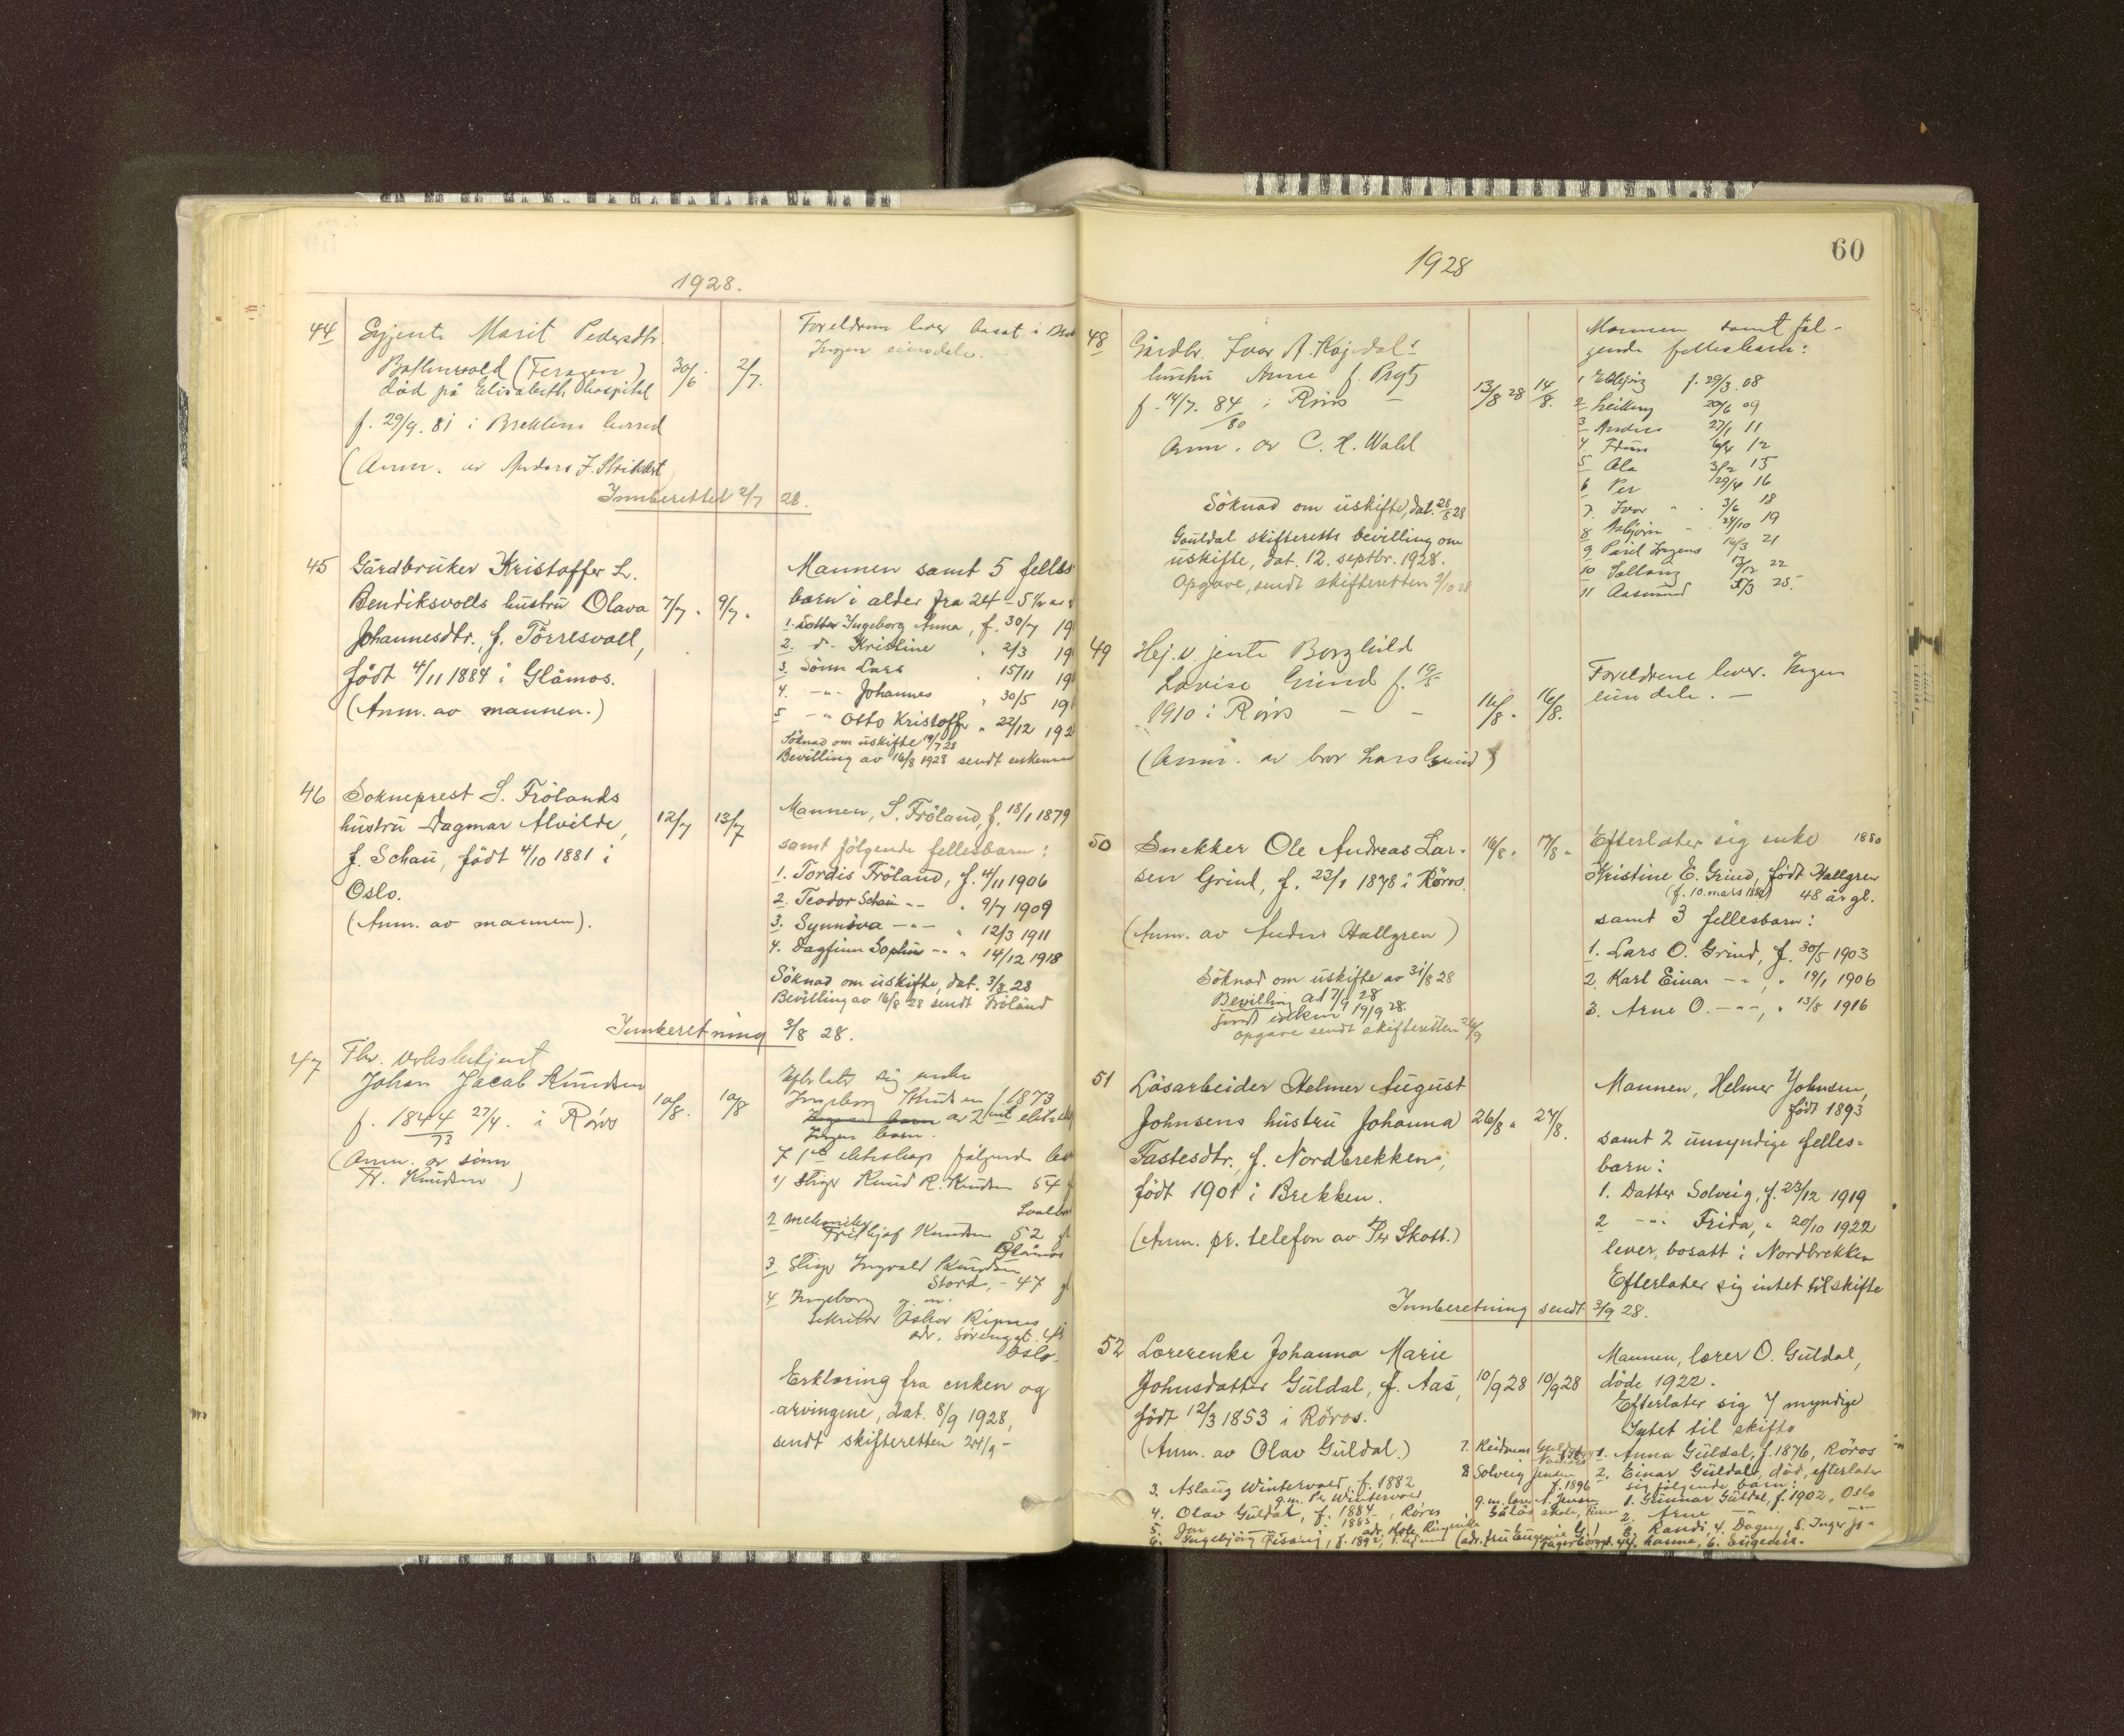 1928.
44 Syjente Marit Pedersdtr.
(Feragen) 30/6 2/7.
død på Elisabeth hospital
f. 29/9. 81 i Brekken herred
(Anm. av Anders J.
Foreldrene lever bosat i
Ingen eiendele.
Innberettet 2/7 28.
45 Gårdbruker Kristoffer L.
Bendiksvolls hustru Olava 7/7. 9/7.
Johannesdtr., f. Törresvoll,
født 4/11 1884 i Glåmos.
(Anm. av mannen.)
Mannen samt 5 felles
barn i alder fra 24 - 5 1/2 år
1. Datter Ingeborg Anna, f. 30/7 19
2. d. Kristine " 2/3 19
3. Sönn Lars " 15/11 19
4. -"- Johannes " 30/5 19
5 -"- Otto Kristoffer " 22/12 192
Söknad om uskifte 19/7 28
Bevilling av 16/8 1928 sendt enkemann
46 Sokneprest S. Frölands
hustru Dagmar Alvilde, 12/7 13/7
f. Schau, født 4/10 1881 i
Oslo.
(Anm. av mannen).
Mannen, S. Fröland, f. 18/1 1879
samt følgende fellesbarn:
1. Tordis Fröland, f. 4/11 1906
2. Teodor Schau -"- " 9/7 1909
3. Synnöva -"- " 12/3 1911
4. Dagfinn Sophus -"- " 14/12 1918
Söknad om uskifte, dat. 3/8 28
Bevilling av 16/8 28 sendt Fröland
Innberetning 3/8 28.
47 Fhv.
Johan Jacob Knudsen
f. 1844 27/4. i Röros 10/8. 10/8
73
(Anm. av sønn
Fr. Knudsen)
Efterlater sig enke
Ingeborg Knudsen f. 1873
av 2net
Ingen barn.
I 1ste ekteskap følgende
1) Stiger Knud R. Knudsen 54
2 mekaniker
Fridtjof Knudsen 52
Glåmos
3 Stiger Ingvald Knudsen
Stord. - 47
4 Ingeborg g. m.
sekretær Oskar Ripnes
adr. Sörenggt.
Oslo.
Erklæring fra enken og
arvingene, dat. 8/9 1928,
sendt skifteretten 24/9 -
60
1928
48 Gårdbr. Ivar A. Kojedals
hustru Anne f. Prytz 13/8 28 14/8.
f. 14/7. 84 i Röros
80
Anm. av C. H. Wahl
Söknad om uskifte, dat. 28/8 28
Gauldal skifteretts bevilling om
uskifte, dat. 12. septbr. 1928.
Opgave, sendt skifteretten 2/10 28
Mannen samt føl-
gende fellesbarn:
1 Ebbjörg f. 29/3. 08
2 20/6 09
3 Anders 27/1 11
4 6/4 12
5 Ola 3/2 15
6 Per 29/4 16
7. Ivar 3/6 18
8 Asbjörn 24/10 19
9 Paul 14/3 21
10 Solbung 13/12 22
11 Aasmund 5/3 25.
49 Hj. v. jente Borghild
Lovise Grind f. 19/5
1910 i Röros - - 16/8. 16/8.
(Anm. av bror Lars Grind)
Foreldrene lever. Ingen
eiendele. -
50 Snekker Ole Andreas Lar- 16/8. 17/8.
sen Grind, f. 23/1 1878 i Röros.
(Anm. av Anders Hallgren)
Söknad om uskifte av 31/8 28
Bevilling ad 7/9 28
Sendt enken 19/9 28.
Opgave sendt skifteretten 26/9
Efterlater sig enke 1880
Kristine E. Grind, født Hallgren
(f. 10. mars 1880) 48 år gl.
samt 3 fellesbarn:
1. Lars O. Grind, f. 30/5 1903
2. Karl Einar -"-, " 19/1 1906
3. Arne O. -"-, " 13/8 1916
51 Lösarbeider Helmer August
Johnsens hustru Johanna 26/8. 27/8.
Tastesdtr., f. Nordbrekken,
født 1901 i Brekken.
(Anm. pr. telefon av Per Skott.)
Mannen, Helmer Johnsen,
født 1893
samt 2 umyndige felles-
barn:
1. Datter Solveig, f. 23/12 1919
2 -"- Frida, " 20/10 1922
lever, bosatt i Nordbrekken
Efterlater sig intet til skifte
Innberetning sendt 3/9 28.
52 Lærerenke Johanna Marie
Johnsdatter Guldal, f. Aas, 10/9 28 10/9 28
født 12/3 1853 i Röros.
(Anm. av Olav Guldal.)
Mannen, lærer O. Guldal,
døde 1922.
Efterlater sig 7 myndige
Intet til skifte
1. Anna Guldal, f. 1876, Röros
2. Einar Guldal, død, efterlater
sig følgende barn:
1. Gunnar Guldal, f. 1902, Oslo
2. Arne -"-
3. Randi, 4. Dagny, 5. Inger Jo-
hanne, 6. Eugenie.
3. Aslaug Wintervold, f. 1882
g.m. Per Wintervold
4. Olav Guldal, f. 1884, Röros
5. Jon f. 1885 adr. Hole, Ringerike
6. Ingebjörg Rissing, f. 1892,
(adr. fru Eugenie G.
Fagerborggt. 44.
7. Reidmar Guldal
8 Solveig Jensen
f. 1896
g.m. lærer A. Jensen
skole,